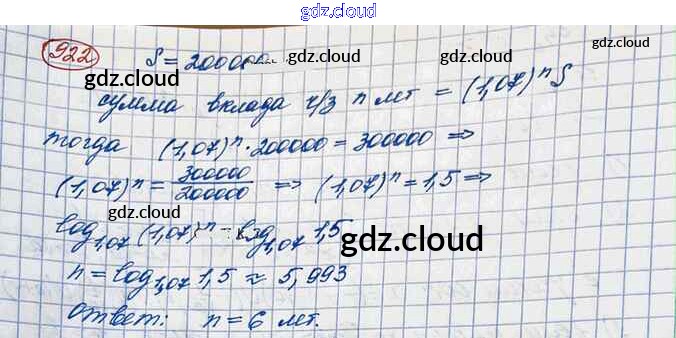 gdz.cloud
922
S = 200000 gdz.cloud
gdz.cloud gdz.cloud
сумма вклада ч/з n лет = (1,07)^n S
тогда (1,07)^n · 200000 = 300000 ⇒
(1,07)^n = 300000/200000 ⇒ (1,07)^n = 1,5 ⇒
gdz.cloud gdz.cloud
log_{1,07} (1,07)^n = log_{1,07} 1,5
gdz.cloud
n = log_{1,07} 1,5 ≈ 5,993
gdz.cloud gdz.cloud
Ответ: n = 6 лет.